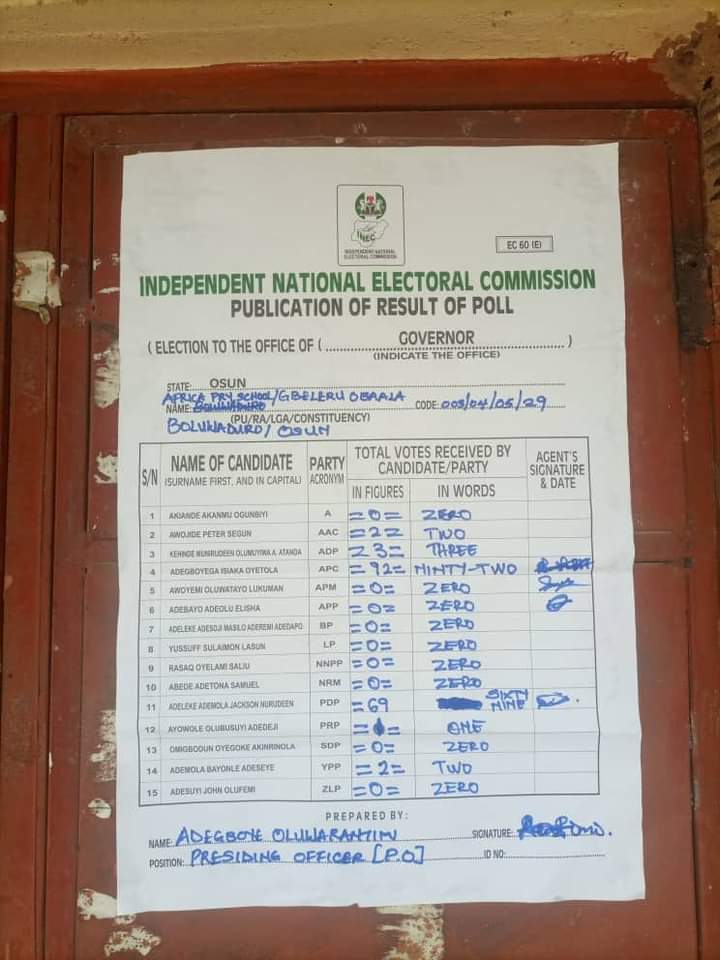 INEC
INDEPENDENT NATIONAL
ELECTORAL COMMISSION
EC 60 (E)
INDEPENDENT NATIONAL ELECTORAL COMMISSION
PUBLICATION OF RESULT OF POLL
( ELECTION TO THE OFFICE OF ( GOVERNOR )
(INDICATE THE OFFICE)
STATE: OSUN
AFRICA PRY SCHOOL/GBELERU OBAALA
NAME: CODE: 005/04/05/29
(PU/RA/LGA/CONSTITUENCY)
BOLUWADURO/ OSUN
S/N NAME OF CANDIDATE (SURNAME FIRST, AND IN CAPITAL) PARTY ACRONYM TOTAL VOTES RECEIVED BY CANDIDATE/PARTY AGENT'S SIGNATURE & DATE
IN FIGURES IN WORDS
1 AKIANDE AKANMU OGUNBIYI A =0= ZERO
2 AWOJIDE PETER SEGUN AAC =2= TWO
3 KEHINDE MUNIRUDEEN OLUMUYIWA A. ATANDA ADP =3= THREE
4 ADEGBOYEGA ISIAKA OYETOLA APC =92= NINTY-TWO
5 AWOYEMI OLUWATAYO LUKUMAN APM =0= ZERO
6 ADEBAYO ADEOLU ELISHA APP =0= ZERO
7 ADELEKE ADESOJI MASILO ADEREMI ADEDAPO BP =0= ZERO
8 YUSSUFF SULAIMON LASUN LP =0= ZERO
9 RASAQ OYELAMI SALIU NNPP =0= ZERO
10 ABEDE ADETONA SAMUEL NRM =0= ZERO
11 ADELEKE ADEMOLA JACKSON NURUDEEN PDP =69 SIXTY NINE
12 AYOWOLE OLUBUSUYI ADEDEJI PRP ONE
13 OMIGBODUN OYEGOKE AKINRINOLA SDP =0= ZERO
14 ADEMOLA BAYONLE ADESEYE YPP =2= TWO
15 ADESUYI JOHN OLUFEMI ZLP =0= ZERO
PREPARED BY:
NAME: ADEGBOYE OLUWARANTIMI SIGNATURE:
POSITION: PRESIDING OFFICER [P.O] ID NO: